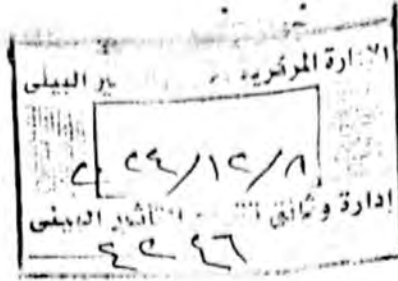 الإدارة المركزية البيئى
٢٠٢٤/١٢/٨
إدارة وثائق تقييم التأثير البيئى
٤٢٤٦